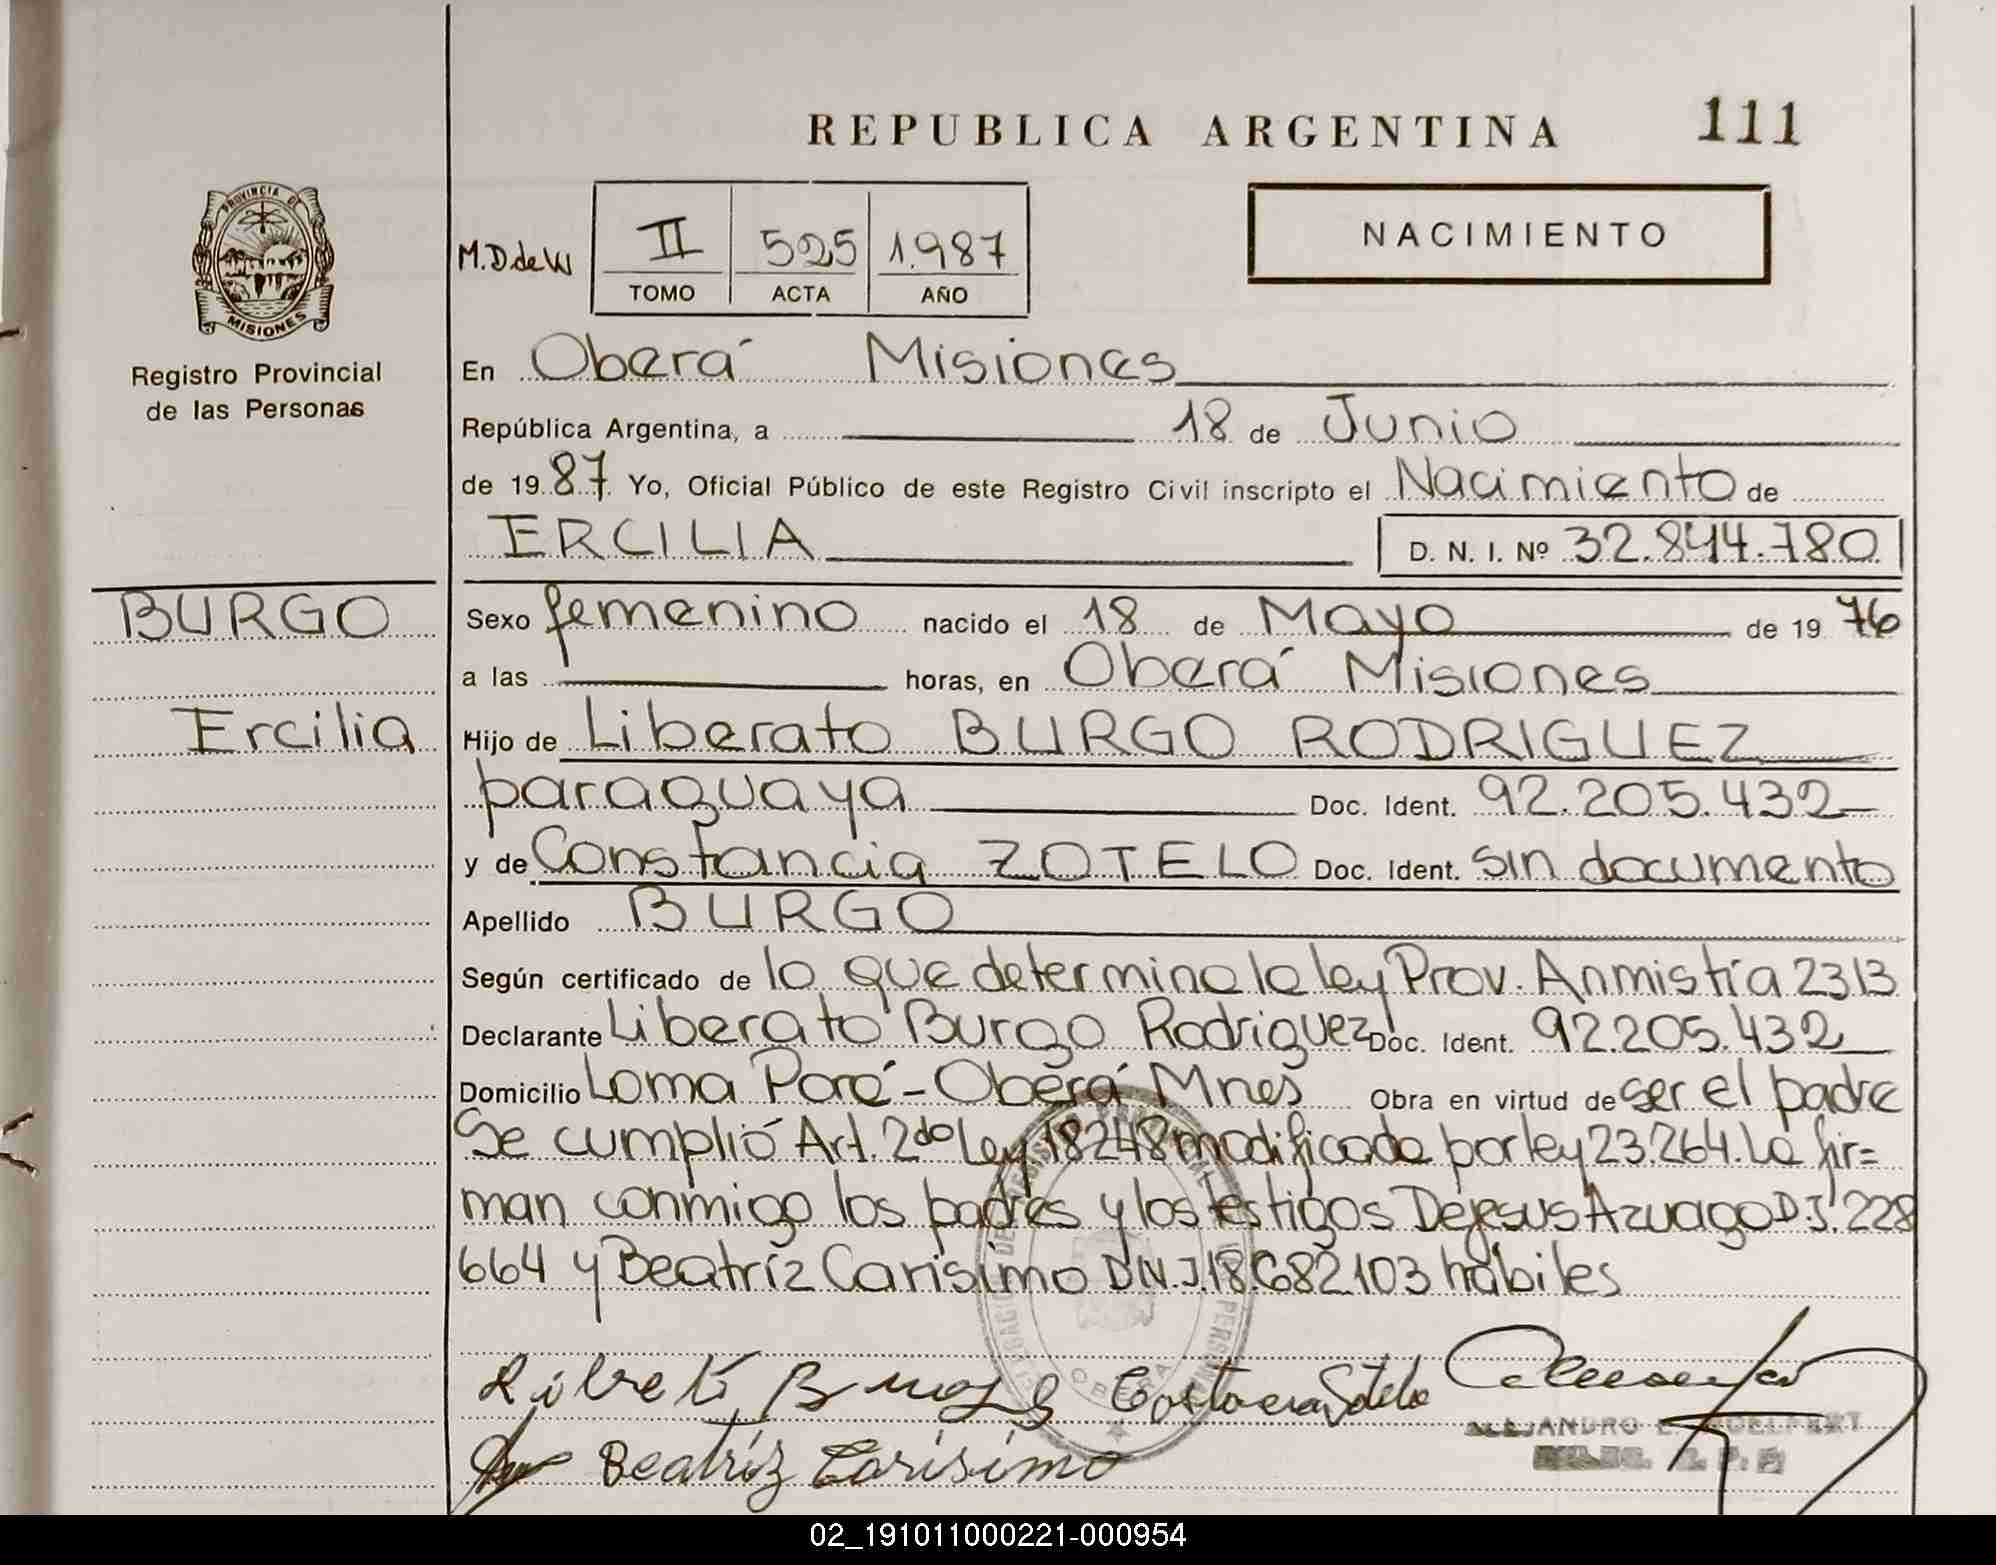 REPUBLICA ARGENTINA 111
PROVINCIA DE MISIONES
Registro Provincial
de las Personas
M.D de W
II 525 1.987
TOMO ACTA AÑO
NACIMIENTO
En Oberá Misiones
República Argentina, a 18 de Junio
de 1987. Yo, Oficial Público de este Registro Civil inscripto el Nacimiento de
ERCILIA D. N. I. Nº 32.844.780
BURGO
Ercilia
Sexo femenino nacido el 18 de Mayo de 1976
a las horas, en Oberá Misiones
Hijo de Liberato BURGO RODRIGUEZ
paraguaya Doc. Ident. 92.205.432
y de Constancia ZOTELO Doc. Ident. sin documento
Apellido BURGO
Según certificado de lo que determina la ley Prov. Anmistía 2313
Declarante Liberato Burgo Rodriguez Doc. Ident. 92.205.432
Domicilio Loma Porá - Oberá Mnes Obra en virtud de ser el padre
Se cumplió Art. 2do Ley 18248 modificada por ley 23.264. La fir=
man conmigo los padres y los testigos Dejesus Azuago D.I. 228
664 y Beatríz Carisimo DN.I 18.682.103 hábiles
Beatríz Carisimo
ALEJANDRO
OBERA
02_191011000221-000954